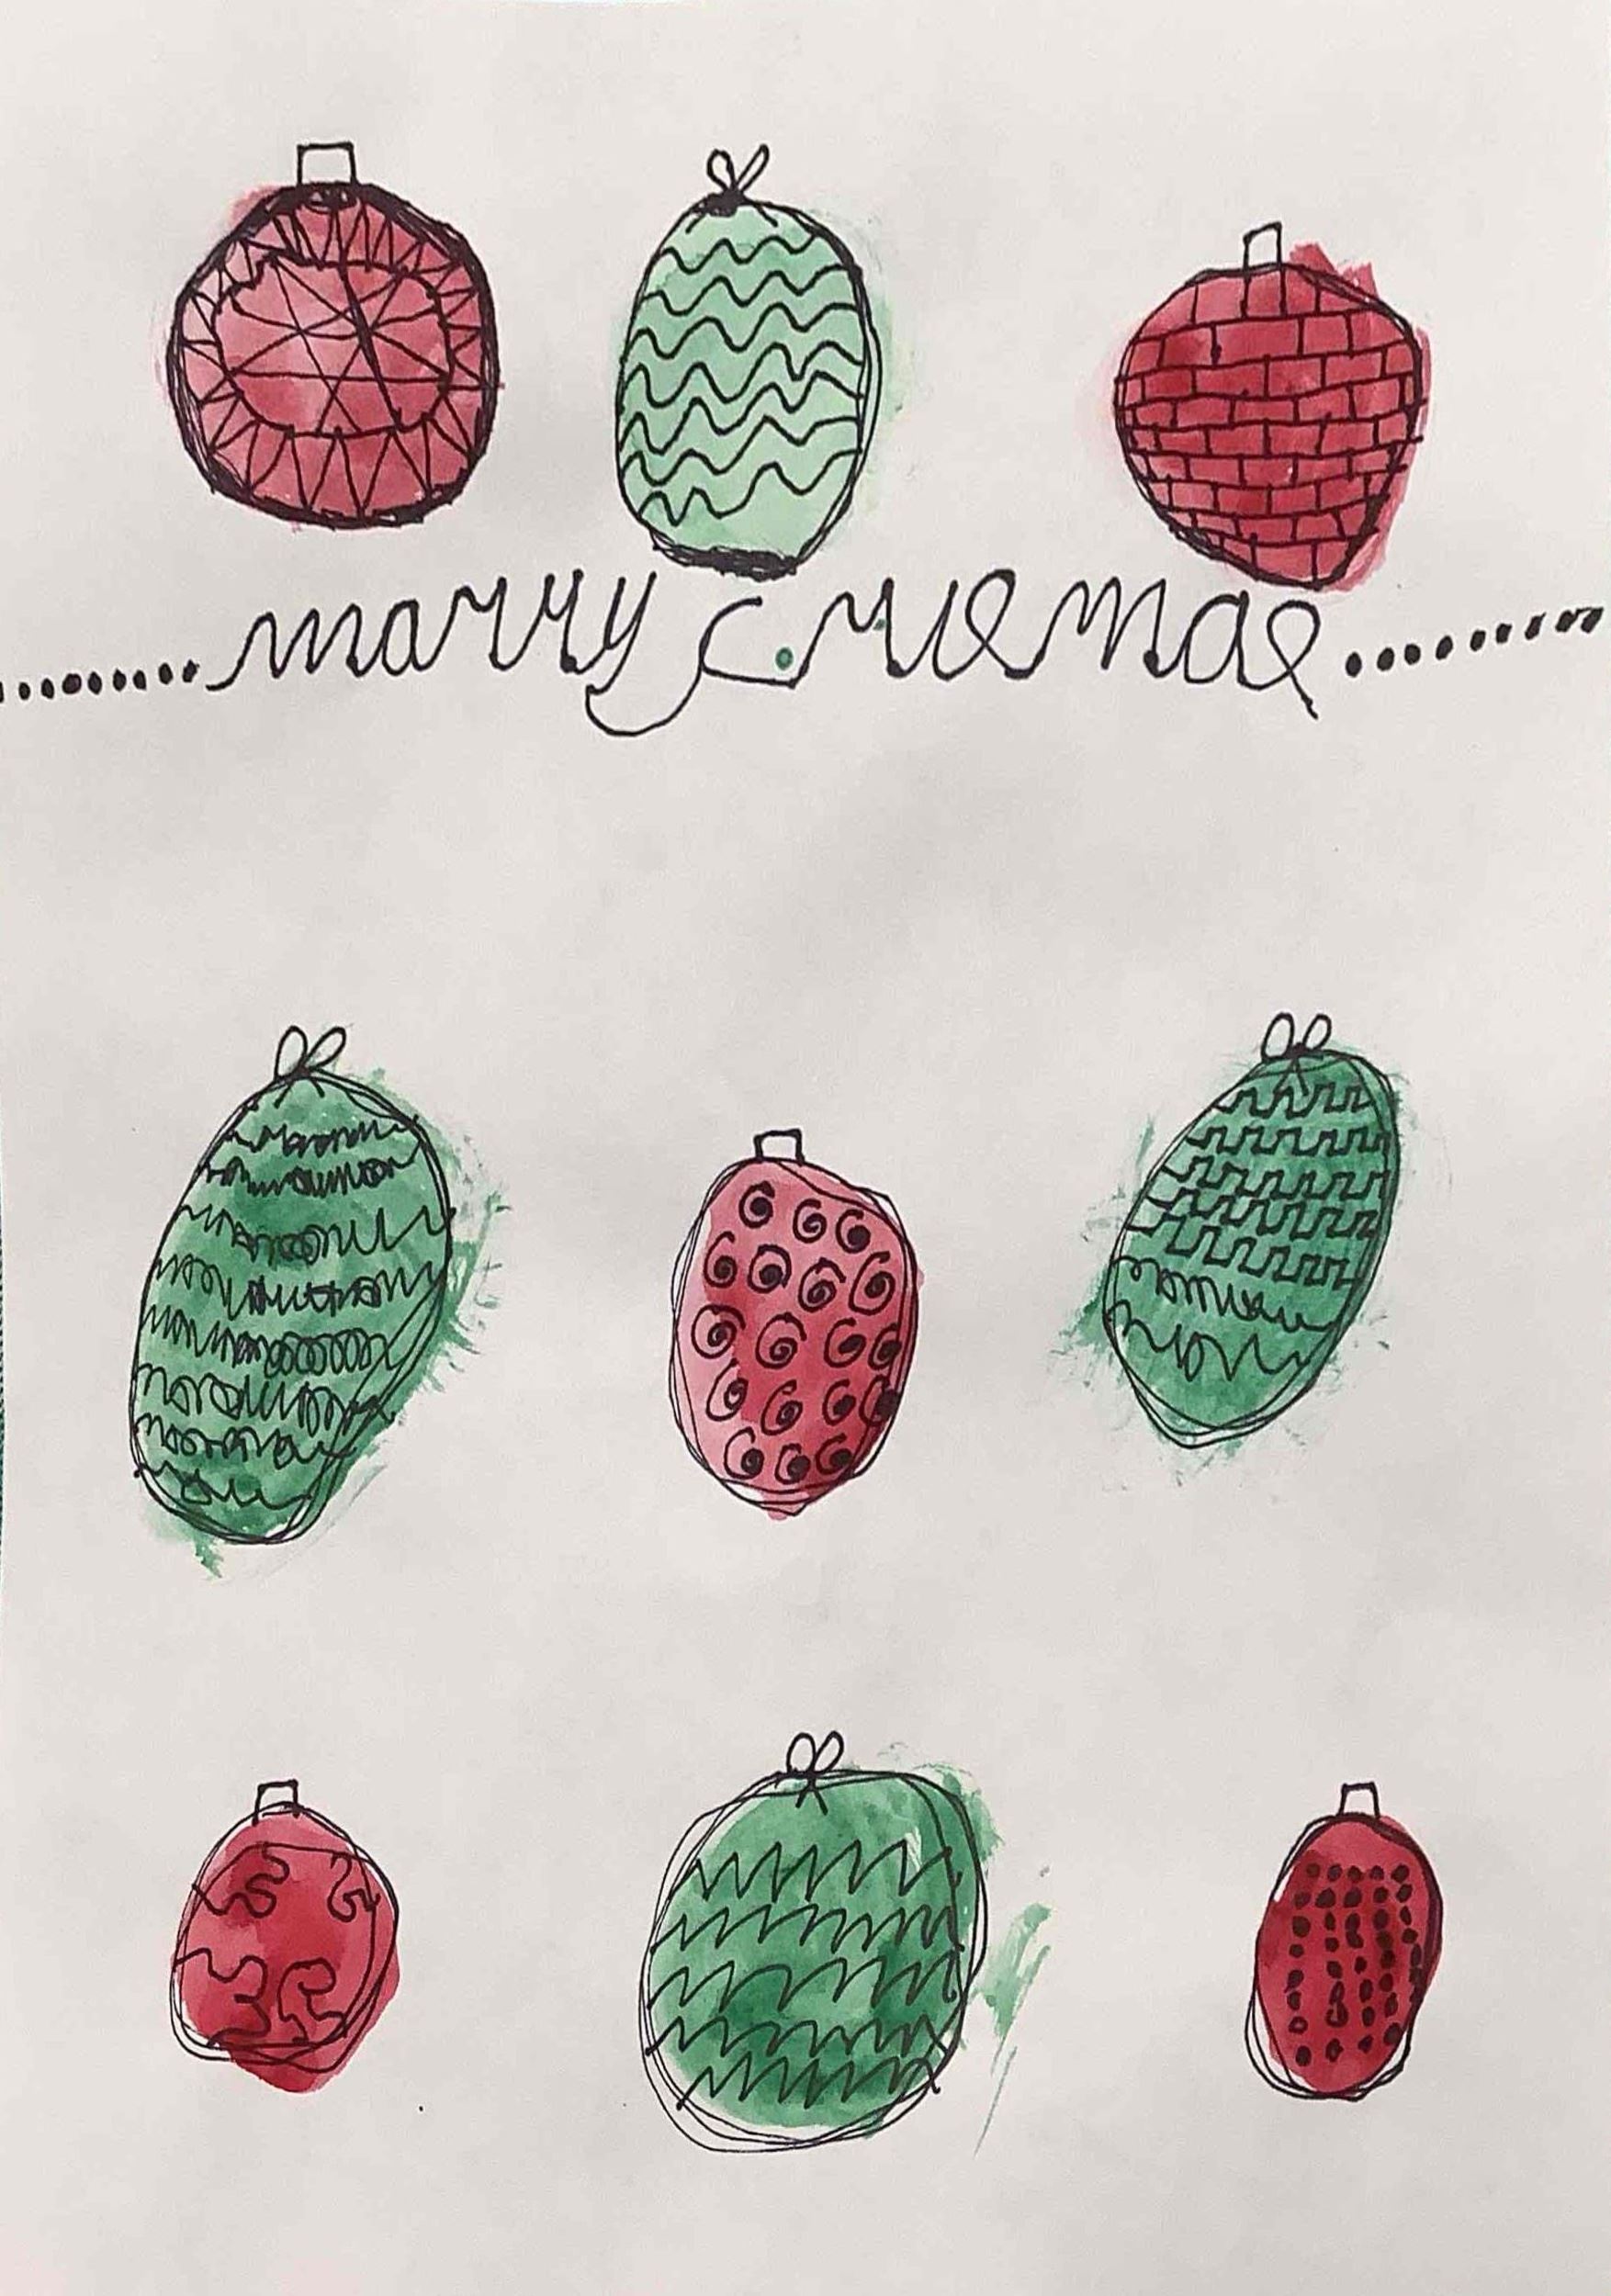 marry crismas